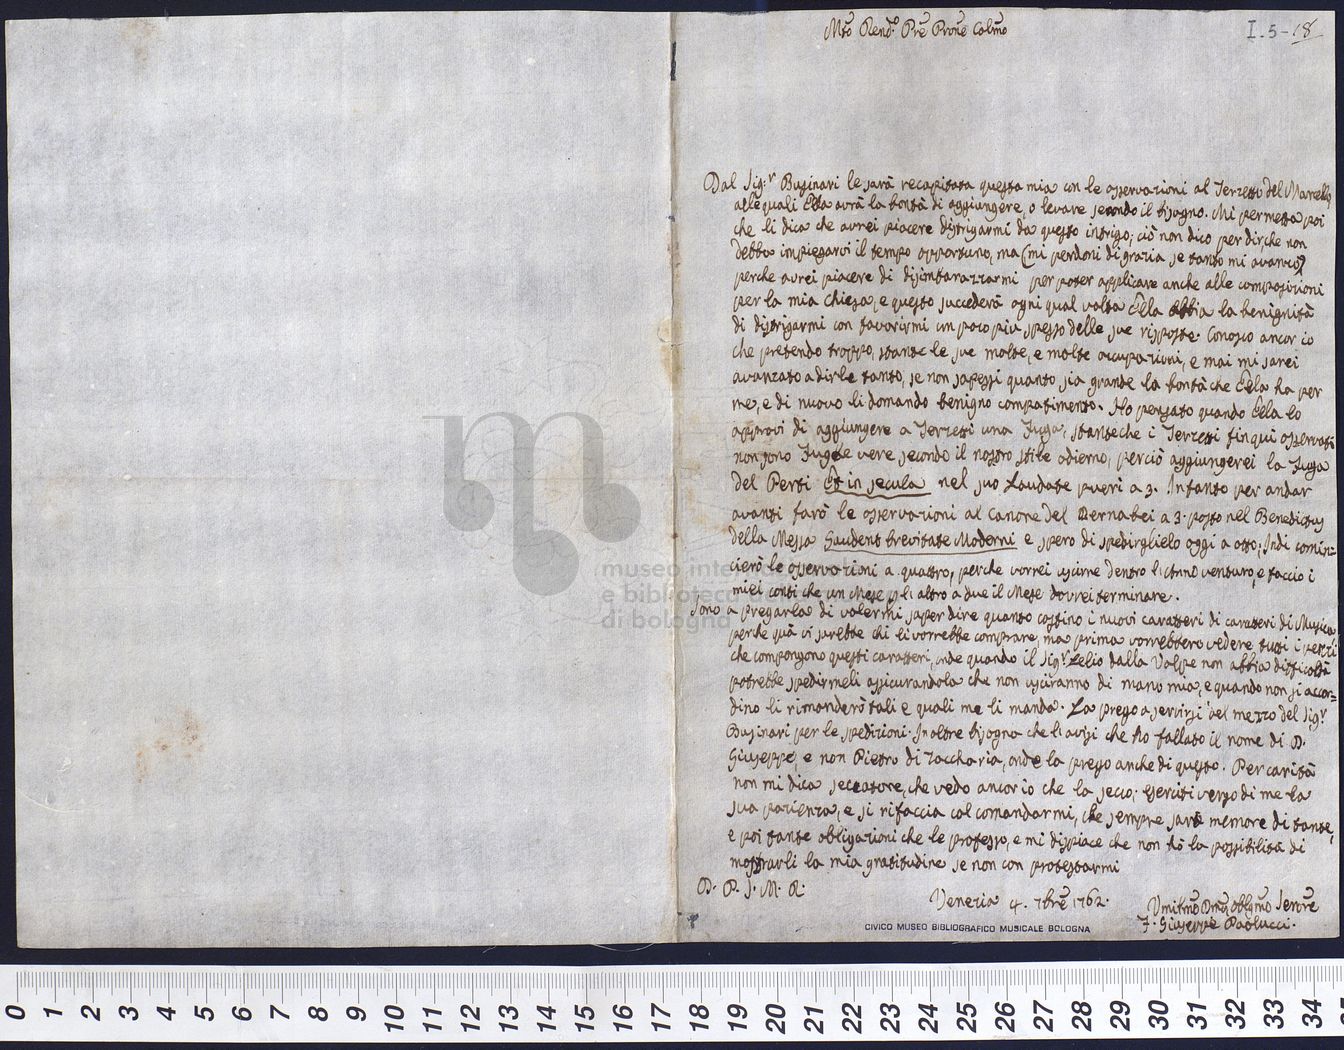 Mto Rendo Pre Prone Colmo
I.5-18
Dal Sig:r Businari le sarà recapitata questa mia con le osservazioni al Terzetto del Marcello
alle quali Ella avrà la bontà di aggiungere, o levare secondo il bisogno. Mi permetta poi
che li dica che avrei piacere distrigarmi da questo intrigo; ciò non dico per dir, che non
debba impiegarvi il tempo opportuno, ma (mi perdoni di grazia se tanto mi avanzo)
perche avrei piacere di disimbarazzarmi per poter applicare anche alle composizioni
per la mia Chiesa, e questo succederà ogni qual volta Ella abbia la benignità
di distrigarmi con favorirmi un poco più spesso delle sue risposte. Conosco ancor io
che pretendo troppo, stante le sue molte, e molte occupazioni, e mai mi sarei
avanzato a dirle tanto, se non sapessi quanto sia grande la bontà che Ella ha per
me, e di nuovo li domando benigno compatimento. Ho pensato quando Ella lo
approvi di aggiungere a Terzetti una Fuga, stanteche i Terzetti fin qui osservati
non sono Fughe vere secondo il nostro stile odierno, perciò aggiungerei la Fuga
del Perti Et in secula nel suo Laudate pueri a 3. Intanto per andar
avanti farò le osservazioni al Canone del Bernabei a 3. posto nel Benedictus
della Messa Gaudent brevitate Moderni e spero di spedirglielo oggi a otto; Indi comin=
cierò le osservazioni a quattro, perche vorrei uscirne dentro l'Anno venturo, e faccio i
miei conti che un Mese p li altro a due il Mese dovrei terminare.
Sono a pregarla di volermi saper dire quanto costino i nuovi caratteri di caratteri di Musica
perche quà vi sarebbe chi li vorrebbe comprare, ma prima vorrebbero vedere tutti i pezzi
che compongono questi caratteri, onde quando il Sig:r Lelio dalla Volpe non abbia difficoltà
potrebbe spedirmeli assicurandola che non usciranno di mano mia, e quando non si accor=
dino li rimanderò tali e quali me li manda. La prego a servirsi del mezzo del Sig:r
Businari per le spedizioni. Inoltre bisogna che li avisi che ho fallato il nome di D.
Giuseppe, e non Pietro di Zaccharia, onde la prego anche di questo. Per carità
non mi dica seccatore, che vedo ancor io che la secco; eserciti verso di me la
sua pazienza, e si rifaccia col comandarmi, che sempre sarò memore di tante,
e poi tante obligazioni che le professo, e mi dispiace che non hò la possibilità di
mostrarli la mia gratitudine se non con protestarmi
D. P. S. M. R.
Venezia 4. 7bre 1762.
Umilmo Dmo oblgmo Servre
F. Giuseppe Paolucci.
CIVICO MUSEO BIBLIOGRAFICO MUSICALE BOLOGNA
museo inter
e biblioteca
di bologna
0 1 2 3 4 5 6 7 8 9 10 11 12 13 14 15 16 17 18 19 20 21 22 23 24 25 26 27 28 29 30 31 32 33 34